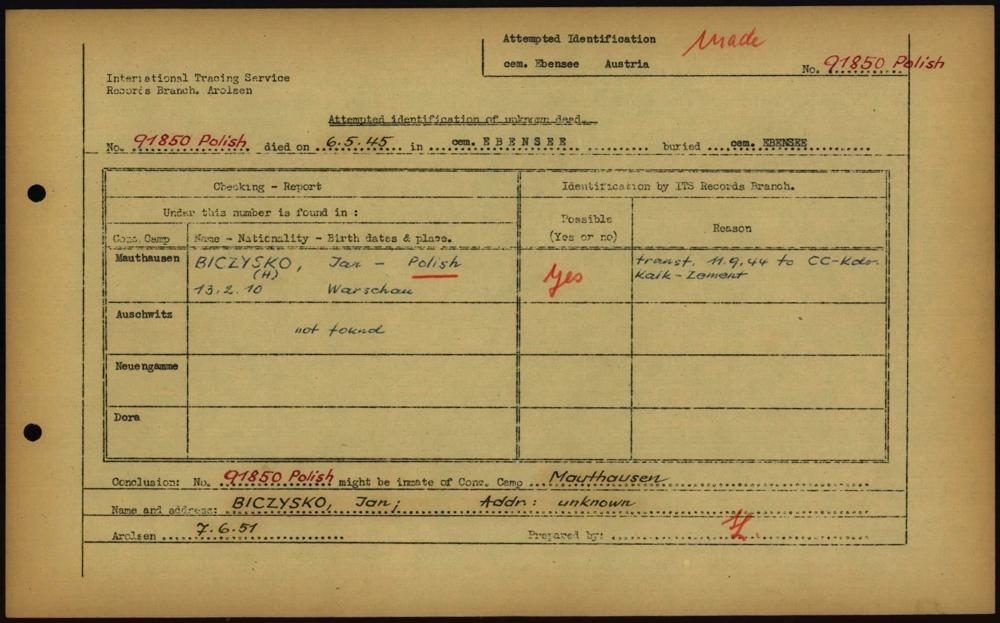 Attempted Identification Made
cem. Ebensee Austria
No. 91850 Polish
International Tracing Service
Records Branch. Arolsen
Attempted identification of unknown dead.
No. 91850 Polish died on 6.5.45 in cem. EBENSEE buried cem. EBENSEE
Checking - Report
Identification by ITS Records Branch.
Under this number is found in :
Possible
(Yes or no)
Reason
Conc. Camp
Name - Nationality - Birth dates & place.
Mauthausen
BICZYSKO, Jan - Polish
(H)
13.2.10 Warschau
Yes
transf. 11.9.44 to CC-Kdo.
Kalk-Zement
Auschwitz
not found
Neuengamme
Dora
Conclusion: No. 91850 Polish might be inmate of Conc. Camp Mauthausen
Name and address: BICZYSKO, Jan; Addr: unknown
Arolsen 7.6.51
Prepared by: